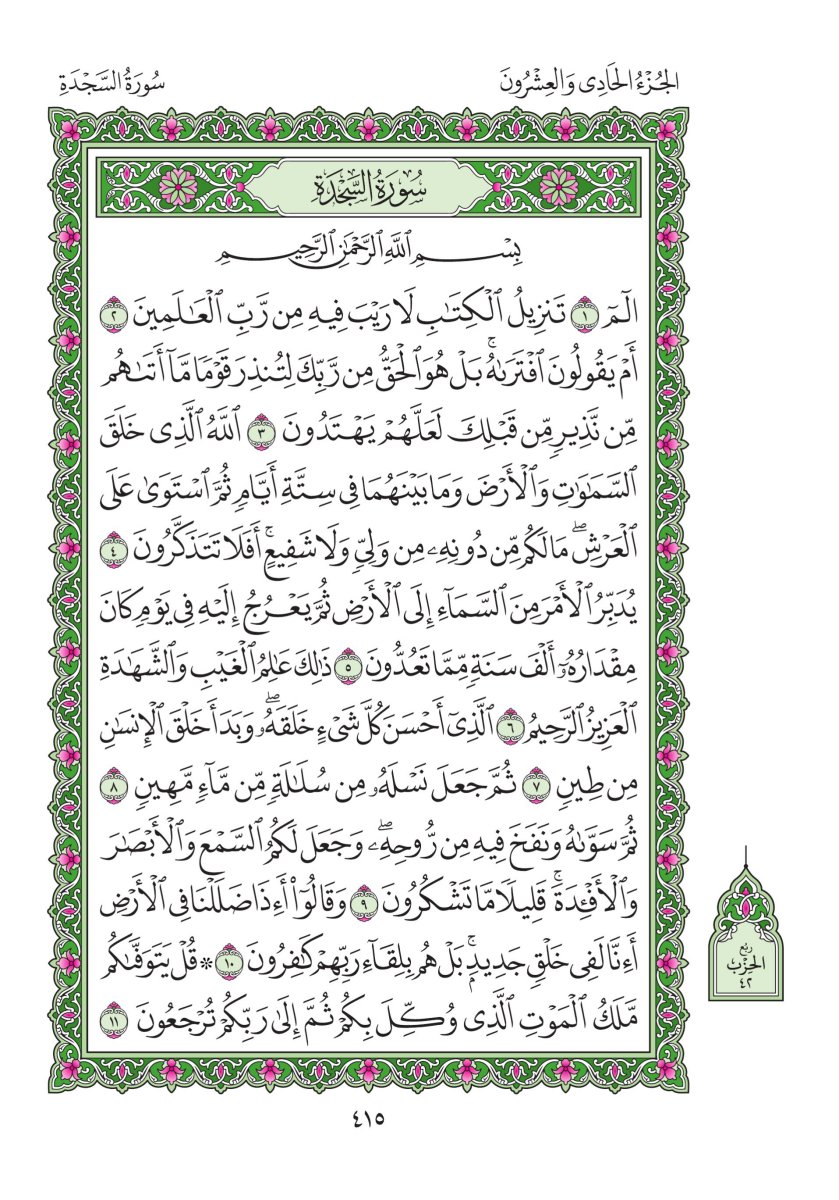 الجُزْءُ الحَادِى وَالعِشْرُونَ
سُورَةُ السَّجْدَةِ
سُورَةُ السَّجْدَةِ
بِسْمِ ٱللَّهِ ٱلرَّحْمَٰنِ ٱلرَّحِيمِ
الٓمٓ ١ تَنزِيلُ ٱلْكِتَٰبِ لَا رَيْبَ فِيهِ مِن رَّبِّ ٱلْعَٰلَمِينَ ٢
أَمْ يَقُولُونَ ٱفْتَرَىٰهُۚ بَلْ هُوَ ٱلْحَقُّ مِن رَّبِّكَ لِتُنذِرَ قَوْمًا مَّآ أَتَىٰهُم
مِّن نَّذِيرٍ مِّن قَبْلِكَ لَعَلَّهُمْ يَهْتَدُونَ ٣ ٱللَّهُ ٱلَّذِى خَلَقَ
ٱلسَّمَٰوَٰتِ وَٱلْأَرْضَ وَمَا بَيْنَهُمَا فِى سِتَّةِ أَيَّامٍ ثُمَّ ٱسْتَوَىٰ عَلَى
ٱلْعَرْشِۖ مَا لَكُم مِّن دُونِهِۦ مِن وَلِىٍّ وَلَا شَفِيعٍۚ أَفَلَا تَتَذَكَّرُونَ ٤
يُدَبِّرُ ٱلْأَمْرَ مِنَ ٱلسَّمَآءِ إِلَى ٱلْأَرْضِ ثُمَّ يَعْرُجُ إِلَيْهِ فِى يَوْمٍ كَانَ
مِقْدَارُهُۥٓ أَلْفَ سَنَةٍ مِّمَّا تَعُدُّونَ ٥ ذَٰلِكَ عَٰلِمُ ٱلْغَيْبِ وَٱلشَّهَٰدَةِ
ٱلْعَزِيزُ ٱلرَّحِيمُ ٦ ٱلَّذِىٓ أَحْسَنَ كُلَّ شَىْءٍ خَلَقَهُۥۖ وَبَدَأَ خَلْقَ ٱلْإِنسَٰنِ
مِن طِينٍ ٧ ثُمَّ جَعَلَ نَسْلَهُۥ مِن سُلَٰلَةٍ مِّن مَّآءٍ مَّهِينٍ ٨
ثُمَّ سَوَّىٰهُ وَنَفَخَ فِيهِ مِن رُّوحِهِۦۖ وَجَعَلَ لَكُمُ ٱلسَّمْعَ وَٱلْأَبْصَٰرَ
وَٱلْأَفْـِٔدَةَۚ قَلِيلًا مَّا تَشْكُرُونَ ٩ وَقَالُوٓا۟ أَءِذَا ضَلَلْنَا فِى ٱلْأَرْضِ
أَءِنَّا لَفِى خَلْقٍ جَدِيدٍۭۚ بَلْ هُم بِلِقَآءِ رَبِّهِمْ كَٰفِرُونَ ١٠ ۞ قُلْ يَتَوَفَّىٰكُم
مَّلَكُ ٱلْمَوْتِ ٱلَّذِى وُكِّلَ بِكُمْ ثُمَّ إِلَىٰ رَبِّكُمْ تُرْجَعُونَ ١١
رُبْع
الحِزْب
٤٢
٤١٥